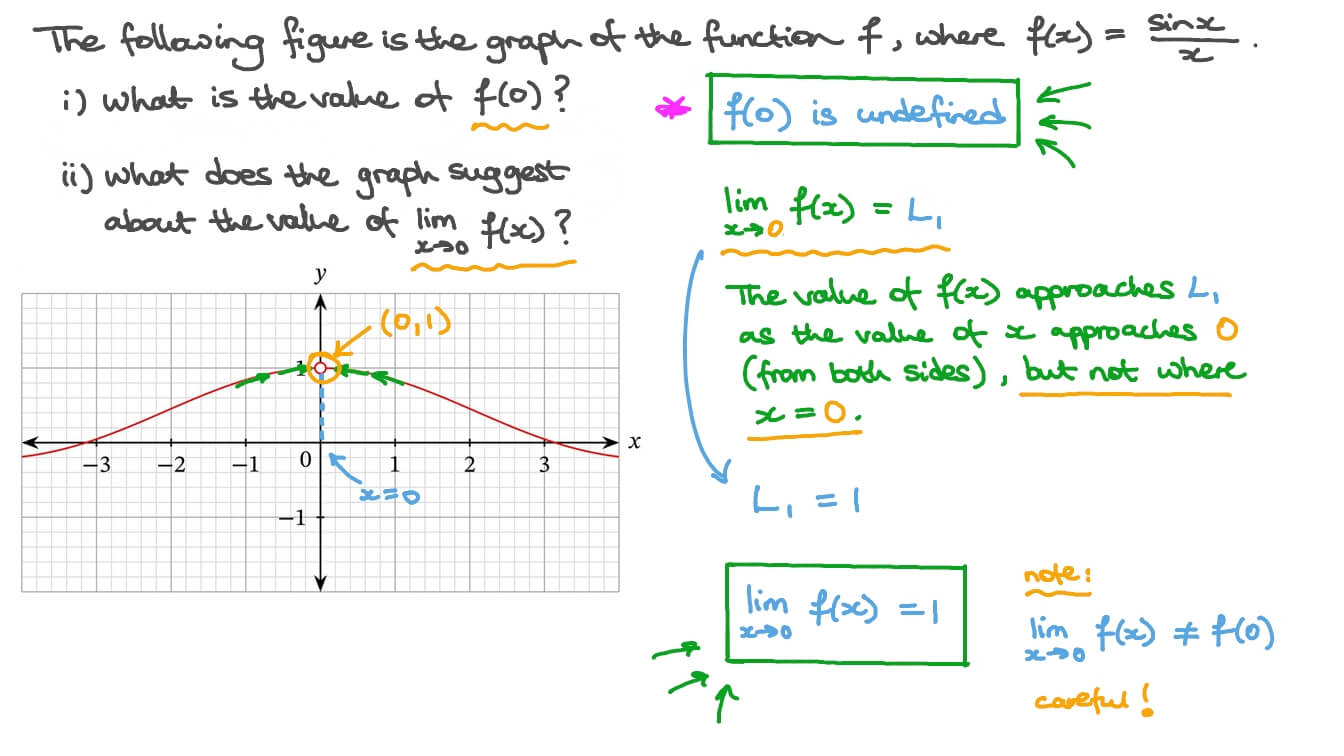 The following figure is the graph of the function f, where f(x) = sinx/x.
i) what is the value of f(0)?
ii) what does the graph suggest
about the value of lim x→0 f(x)?
y
(0,1)
1
x
−3 −2 −1 0 1 2 3
x=0
−1
* f(0) is undefined
lim x→0 f(x) = L₁
The value of f(x) approaches L₁
as the value of x approaches 0
(from both sides), but not where
x = 0.
L₁ = 1
lim x→0 f(x) = 1
note:
lim x→0 f(x) ≠ f(0)
careful!